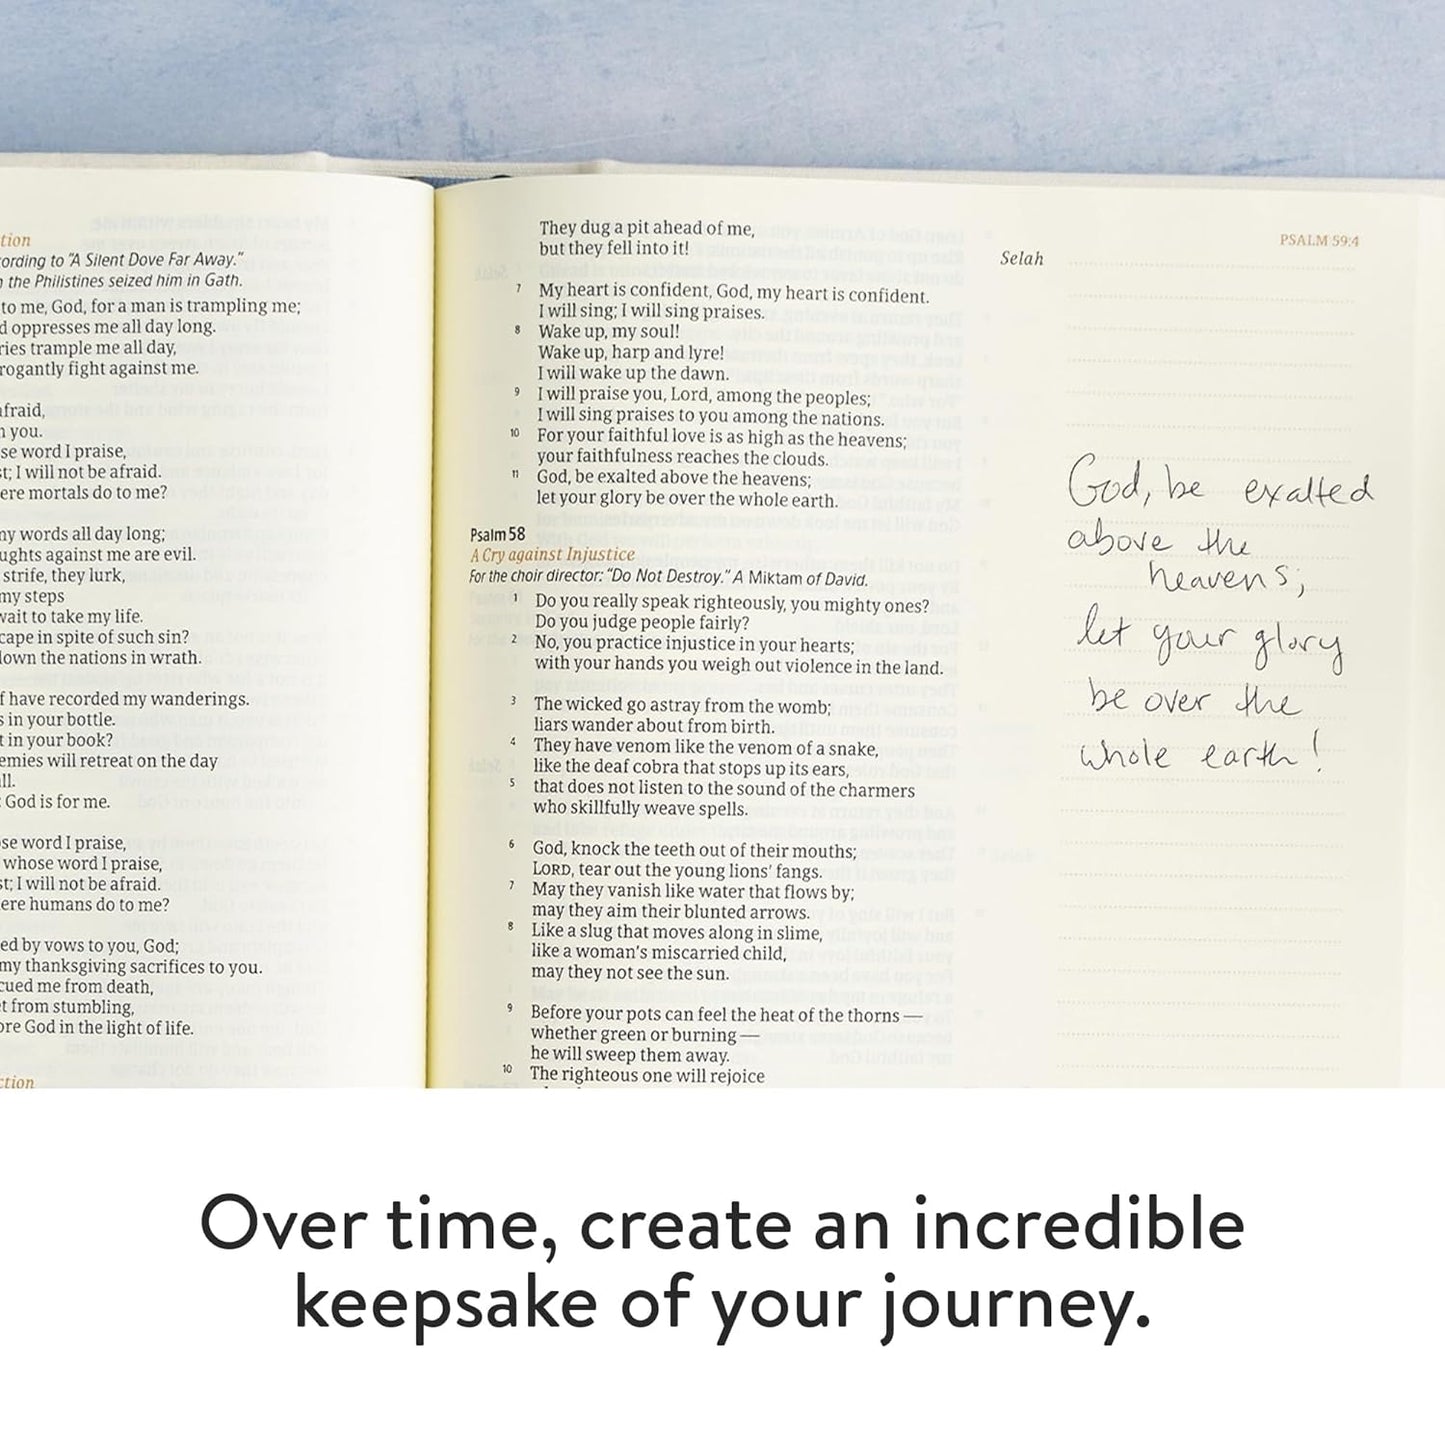 tion
ording to "A Silent Dove Far Away."
the Philistines seized him in Gath.
to me, God, for a man is trampling me;
d oppresses me all day long.
ries trample me all day,
rogantly fight against me.
fraid,
you.
se word I praise,
t; I will not be afraid.
ere mortals do to me?
ny words all day long;
ughts against me are evil.
strife, they lurk,
my steps
wait to take my life.
cape in spite of such sin?
down the nations in wrath.
f have recorded my wanderings.
s in your bottle.
t in your book?
emies will retreat on the day
ll.
God is for me.
se word I praise,
whose word I praise,
st; I will not be afraid.
ere humans do to me?
ed by vows to you, God;
my thanksgiving sacrifices to you.
cued me from death,
t from stumbling,
ore God in the light of life.
ction
They dug a pit ahead of me,
but they fell into it! Selah
7 My heart is confident, God, my heart is confident.
I will sing; I will sing praises.
8 Wake up, my soul!
Wake up, harp and lyre!
I will wake up the dawn.
9 I will praise you, Lord, among the peoples;
I will sing praises to you among the nations.
10 For your faithful love is as high as the heavens;
your faithfulness reaches the clouds.
11 God, be exalted above the heavens;
let your glory be over the whole earth.
Psalm 58
A Cry against Injustice
For the choir director: "Do Not Destroy." A Miktam of David.
1 Do you really speak righteously, you mighty ones?
Do you judge people fairly?
2 No, you practice injustice in your hearts;
with your hands you weigh out violence in the land.
3 The wicked go astray from the womb;
liars wander about from birth.
4 They have venom like the venom of a snake,
like the deaf cobra that stops up its ears,
5 that does not listen to the sound of the charmers
who skillfully weave spells.
6 God, knock the teeth out of their mouths;
LORD, tear out the young lions' fangs.
7 May they vanish like water that flows by;
may they aim their blunted arrows.
8 Like a slug that moves along in slime,
like a woman's miscarried child,
may they not see the sun.
9 Before your pots can feel the heat of the thorns —
whether green or burning —
he will sweep them away.
10 The righteous one will rejoice
PSALM 59:4
God, be exalted
above the
heavens;
let your glory
be over the
whole earth!
Over time, create an incredible
keepsake of your journey.